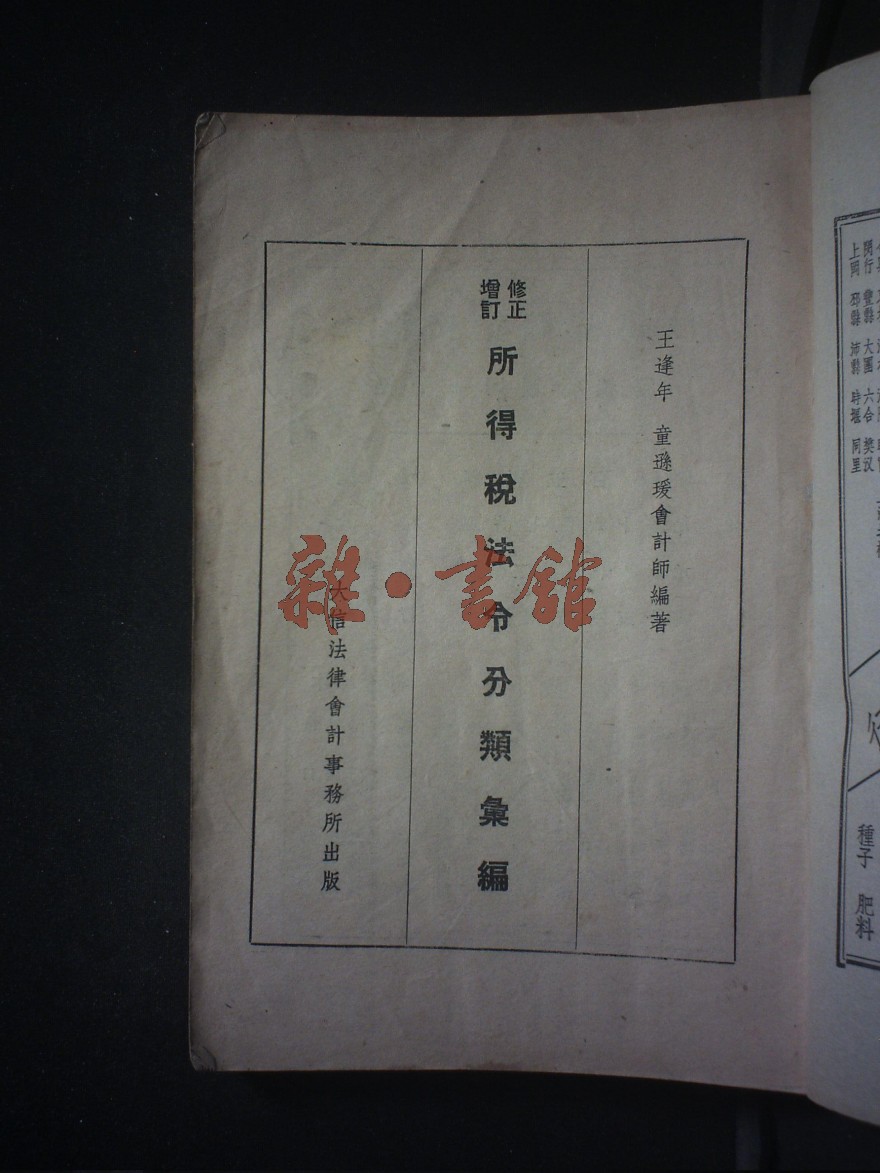 王逢年 童遜瑗會計師編著
修正
增訂
所得稅法令分類彙編
大信法律會計事務所出版
雜·書館
種子 肥料